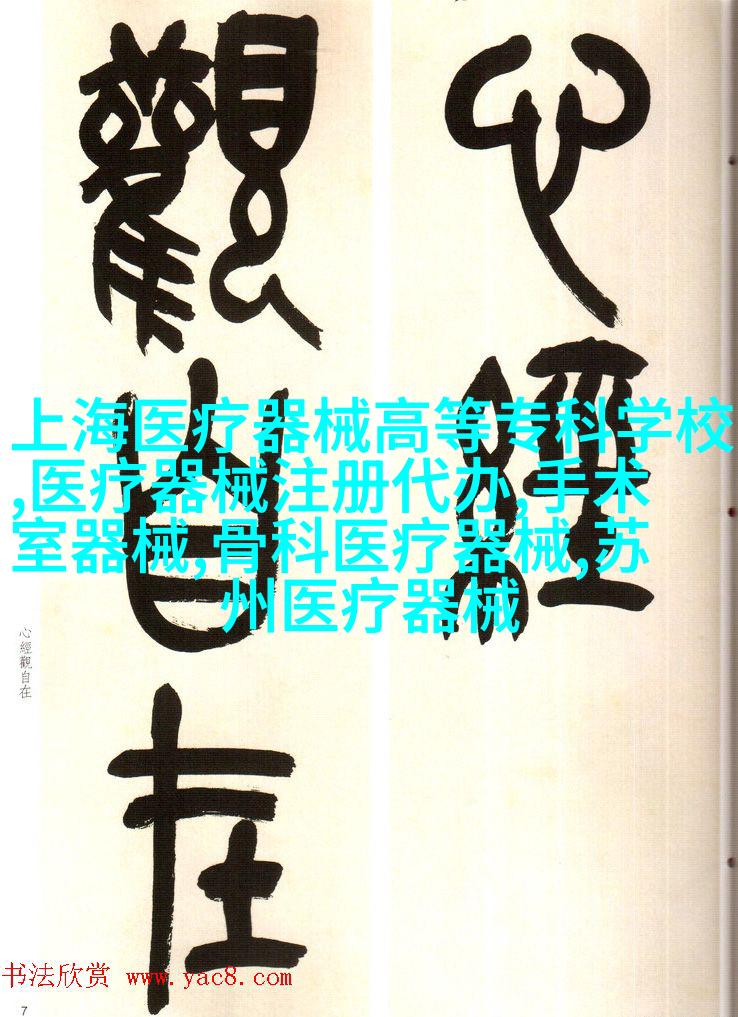 心經
觀自在
上海医疗器械高等专科学校
,医疗器械注册代办,手术
室器械,骨科医疗器械,苏
州医疗器械
心經觀自在
书法欣赏 www.yac8.com
7